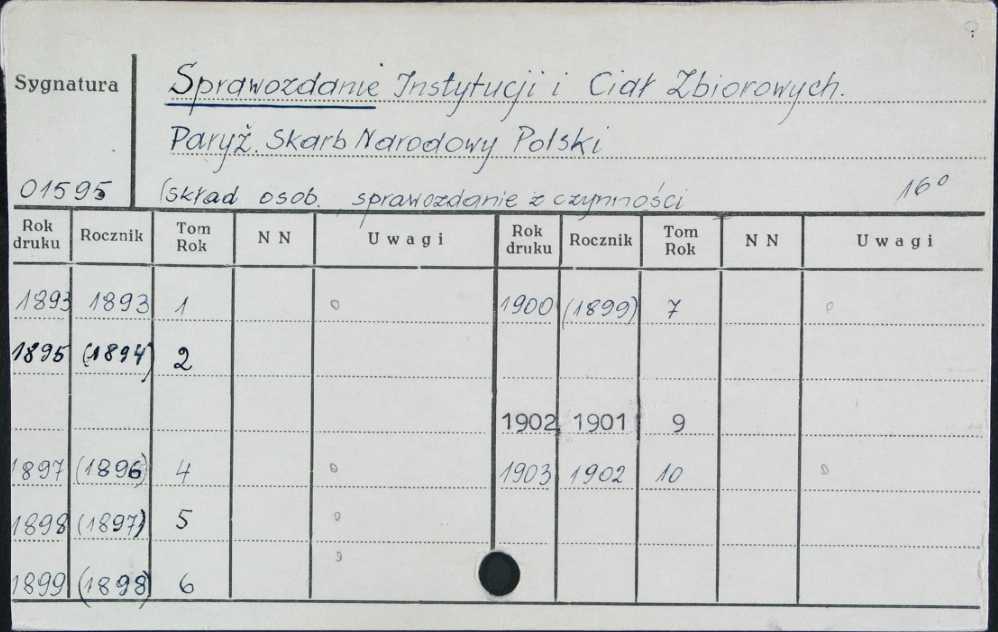 Sygnatura
Sprawozdanie Instytucji i Ciał Zbiorowych.
Paryż. Skarb Narodowy Polski
01595 (skład osob. , sprawozdanie z czynności 16°
Rok druku Rocznik Tom Rok N N Uwagi Rok druku Rocznik Tom Rok N N Uwagi
1893 1893 1 o 1900 (1899) 7 o
1895 (1894) 2
1902 1901 9
1897 (1896) 4 o 1903 1902 10 o
1898 (1897) 5 o
1899 (1898) 6 o